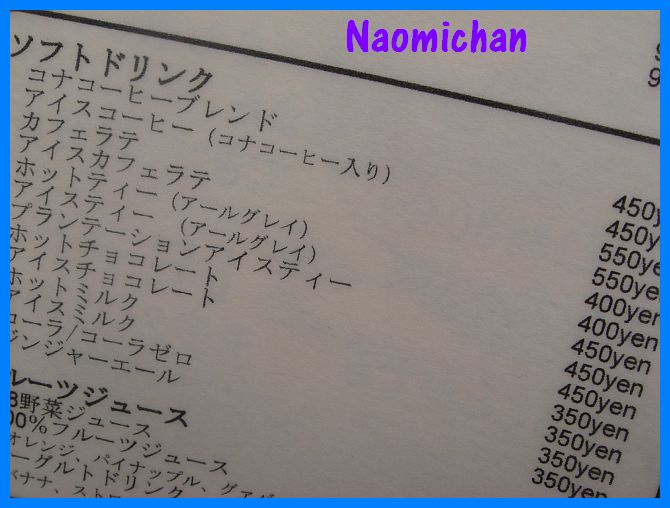 Naomichan
ソフトドリンク
コナコーヒーブレンド 450y
アイスコーヒー (コナコーヒー入り) 450y
カフェラテ 550ye
アイスカフェラテ 550ye
ホットティー (アールグレイ) 400yen
アイスティー (アールグレイ) 400yen
プランテーションアイスティー 450yen
ホットチョコレート 450yen
アイスチョコレート 450yen
ホットミルク 350yen
アイスミルク 350yen
コーラ/コーラゼロ 350yen
ジンジャーエール 350yen
ルーツジュース
野菜ジュース
00%フルーツジュース
オレンジ、パイナップル、グァバ
ーグルトドリンク